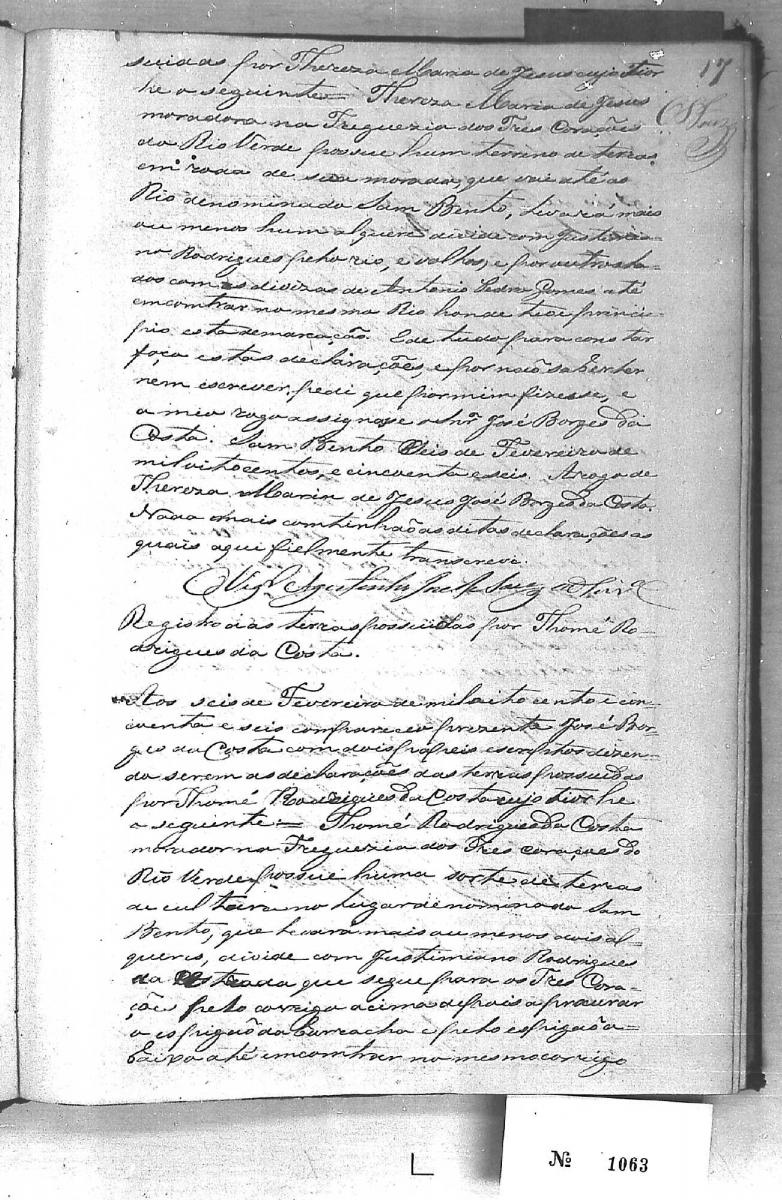 suidas por Thereza Maria de Jesus cujo tior
he o seguinte = Thereza Maria de Jesus
moradora na Freguezia dos Tres Corações
do Rio Verde possue hum terreno de terras
em roda de sua morada, que vai até ao
Rio denominado Sam Bento, levará mais
ou menos hum alquere divide com Justinia-
no Rodrigues pelo rio, e vallos, e por outros la-
dos com as divizas de Antonio Pedro Gomes até
encontrar no mesmo Rio honde teve princi-
pio esta demarcação. E de tudo para constar
faço estas declarações, e por não saber ler
nem escrever pedi que por mim fizesse, e
a meu rogo assignase o Snr José Borges da
Costa. Sam Bento Seis de Fevereiro de
mil oitocentos, e cincoenta e seis. A rogo de
Thereza Maria de Jesus José Borges da Costa.
Nada mais continhão as ditas declarações as
quais aqui fielmente transcrevi.
Vigr. Agostinho José de Souza
Registro das terras possuidas por Thomé Ro-
drigues da Costa.
Aos seis de Fevereiro de mil oito cento e cin-
coenta e seis compareceo prezente José Bor-
ges da Costa com dois papeis escriptos dizen-
do serem as declarações das terras possuidas
por Thomé Rodrigues da Costa cujo tior he
o seguinte = Thomé Rodrigues da Costa
morador na Freguezia dos Tres corações do
Rio Verde possue huma sorte de terras
de cultura no lugar denominado Sam
Bento, que levará mais ou menos dois al-
queres, divide com Justiniano Rodrigues
da estrada que segue para os Tres Cora-
ções pelo corrigo acima depois a procurar
o espigão da e pelo espigão a-
baixo até encontrar no mesmo corrigo
17
Souza
Nº 1063